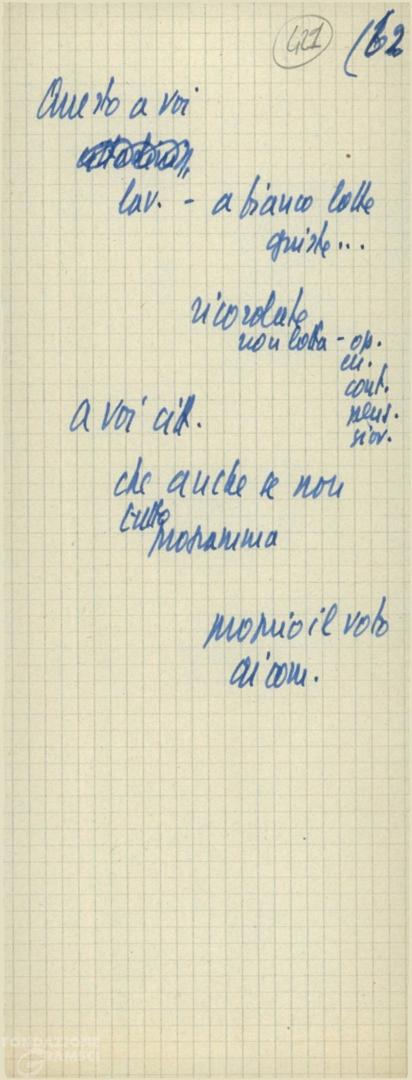 421 (62
Questo a voi
lav. - a fianco lotte
giuste...
ricordate
non lotta - op.
cu.
cont.
pens.
giov.
a voi citt.
che anche se non
tutto
programma
proprio il voto
ai com.
FONDAZIONE
GRAMSCI